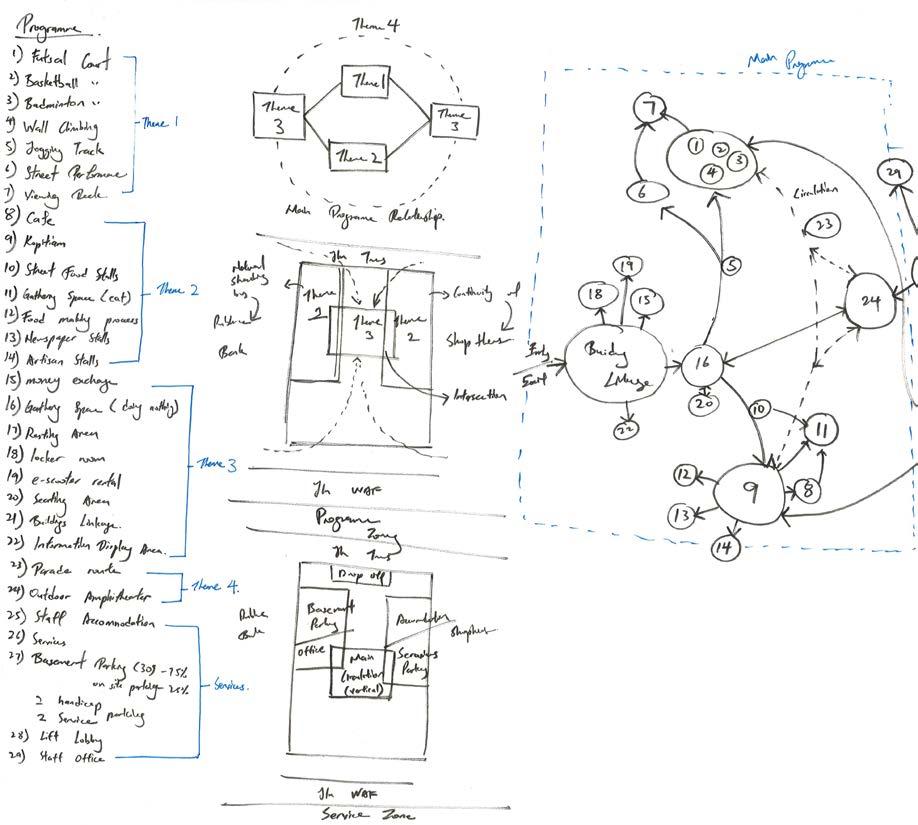 Programme
1) Futsal Court
2) Basketball "
3) Badminton "
4) Wall Climbing
5) Jogging Track
6) Street Performance
7) Viewing Deck
Theme 1
8) Cafe
9) Kopitiam
10) Street Food Stalls
11) Gathering Space (eat)
12) Food making process
13) Newspaper Stalls
14) Artisan Stalls
Theme 2
15) money exchange
16) Gathering Space (doing nothing)
17) Resting Area
18) locker room
19) e-scooter rental
20) Seating Area
21) Buildings Linkage.
22) Information Display Area.
Theme 3
23) Parade route
24) Outdoor Amphitheater
Theme 4.
25) Staff Accomodation
26) Services
27) Basement Parking (30) - 75%
on site parking - 25%
2 handicap
2 Service parking
28) Lift Lobby
29) Staff Office
Services.
Theme 4
Theme 1
Theme 3
Theme 3
Theme 2
Main Programme Relationship.
Jln Tuas
Theme 2
Theme 3
Theme 2
Continuity of
Shophouses
Bank
Intersection
Jln WAF
Programme Zoning
Jln Tuas
Drop off
Basement Parking
Office
Main Circulation (vertical)
Parking
Bank
Jln WAF
Service Zone
Main Programme
7
1
2
3
4
6
5
29
Circulation
23
24
19
18
15
Building Linkage
16
20
22
10
11
9
8
12
13
14